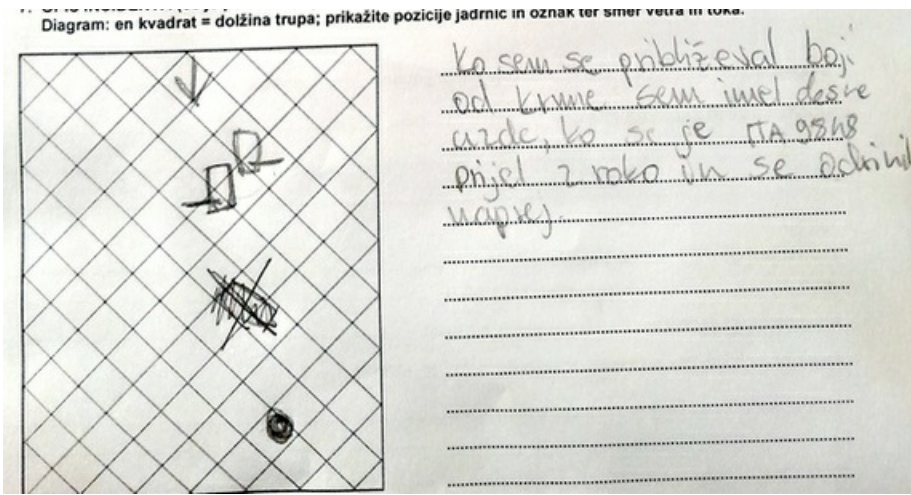 Diagram: en kvadrat = dolžina trupa; prikažite pozicije jadrnic in oznak ter smer vetra in toka.
Ko sem se približeval boji
od krme sem imel desne
uzde, ko se je ITA 9848
prijel z roko in se odrinil
naprej.